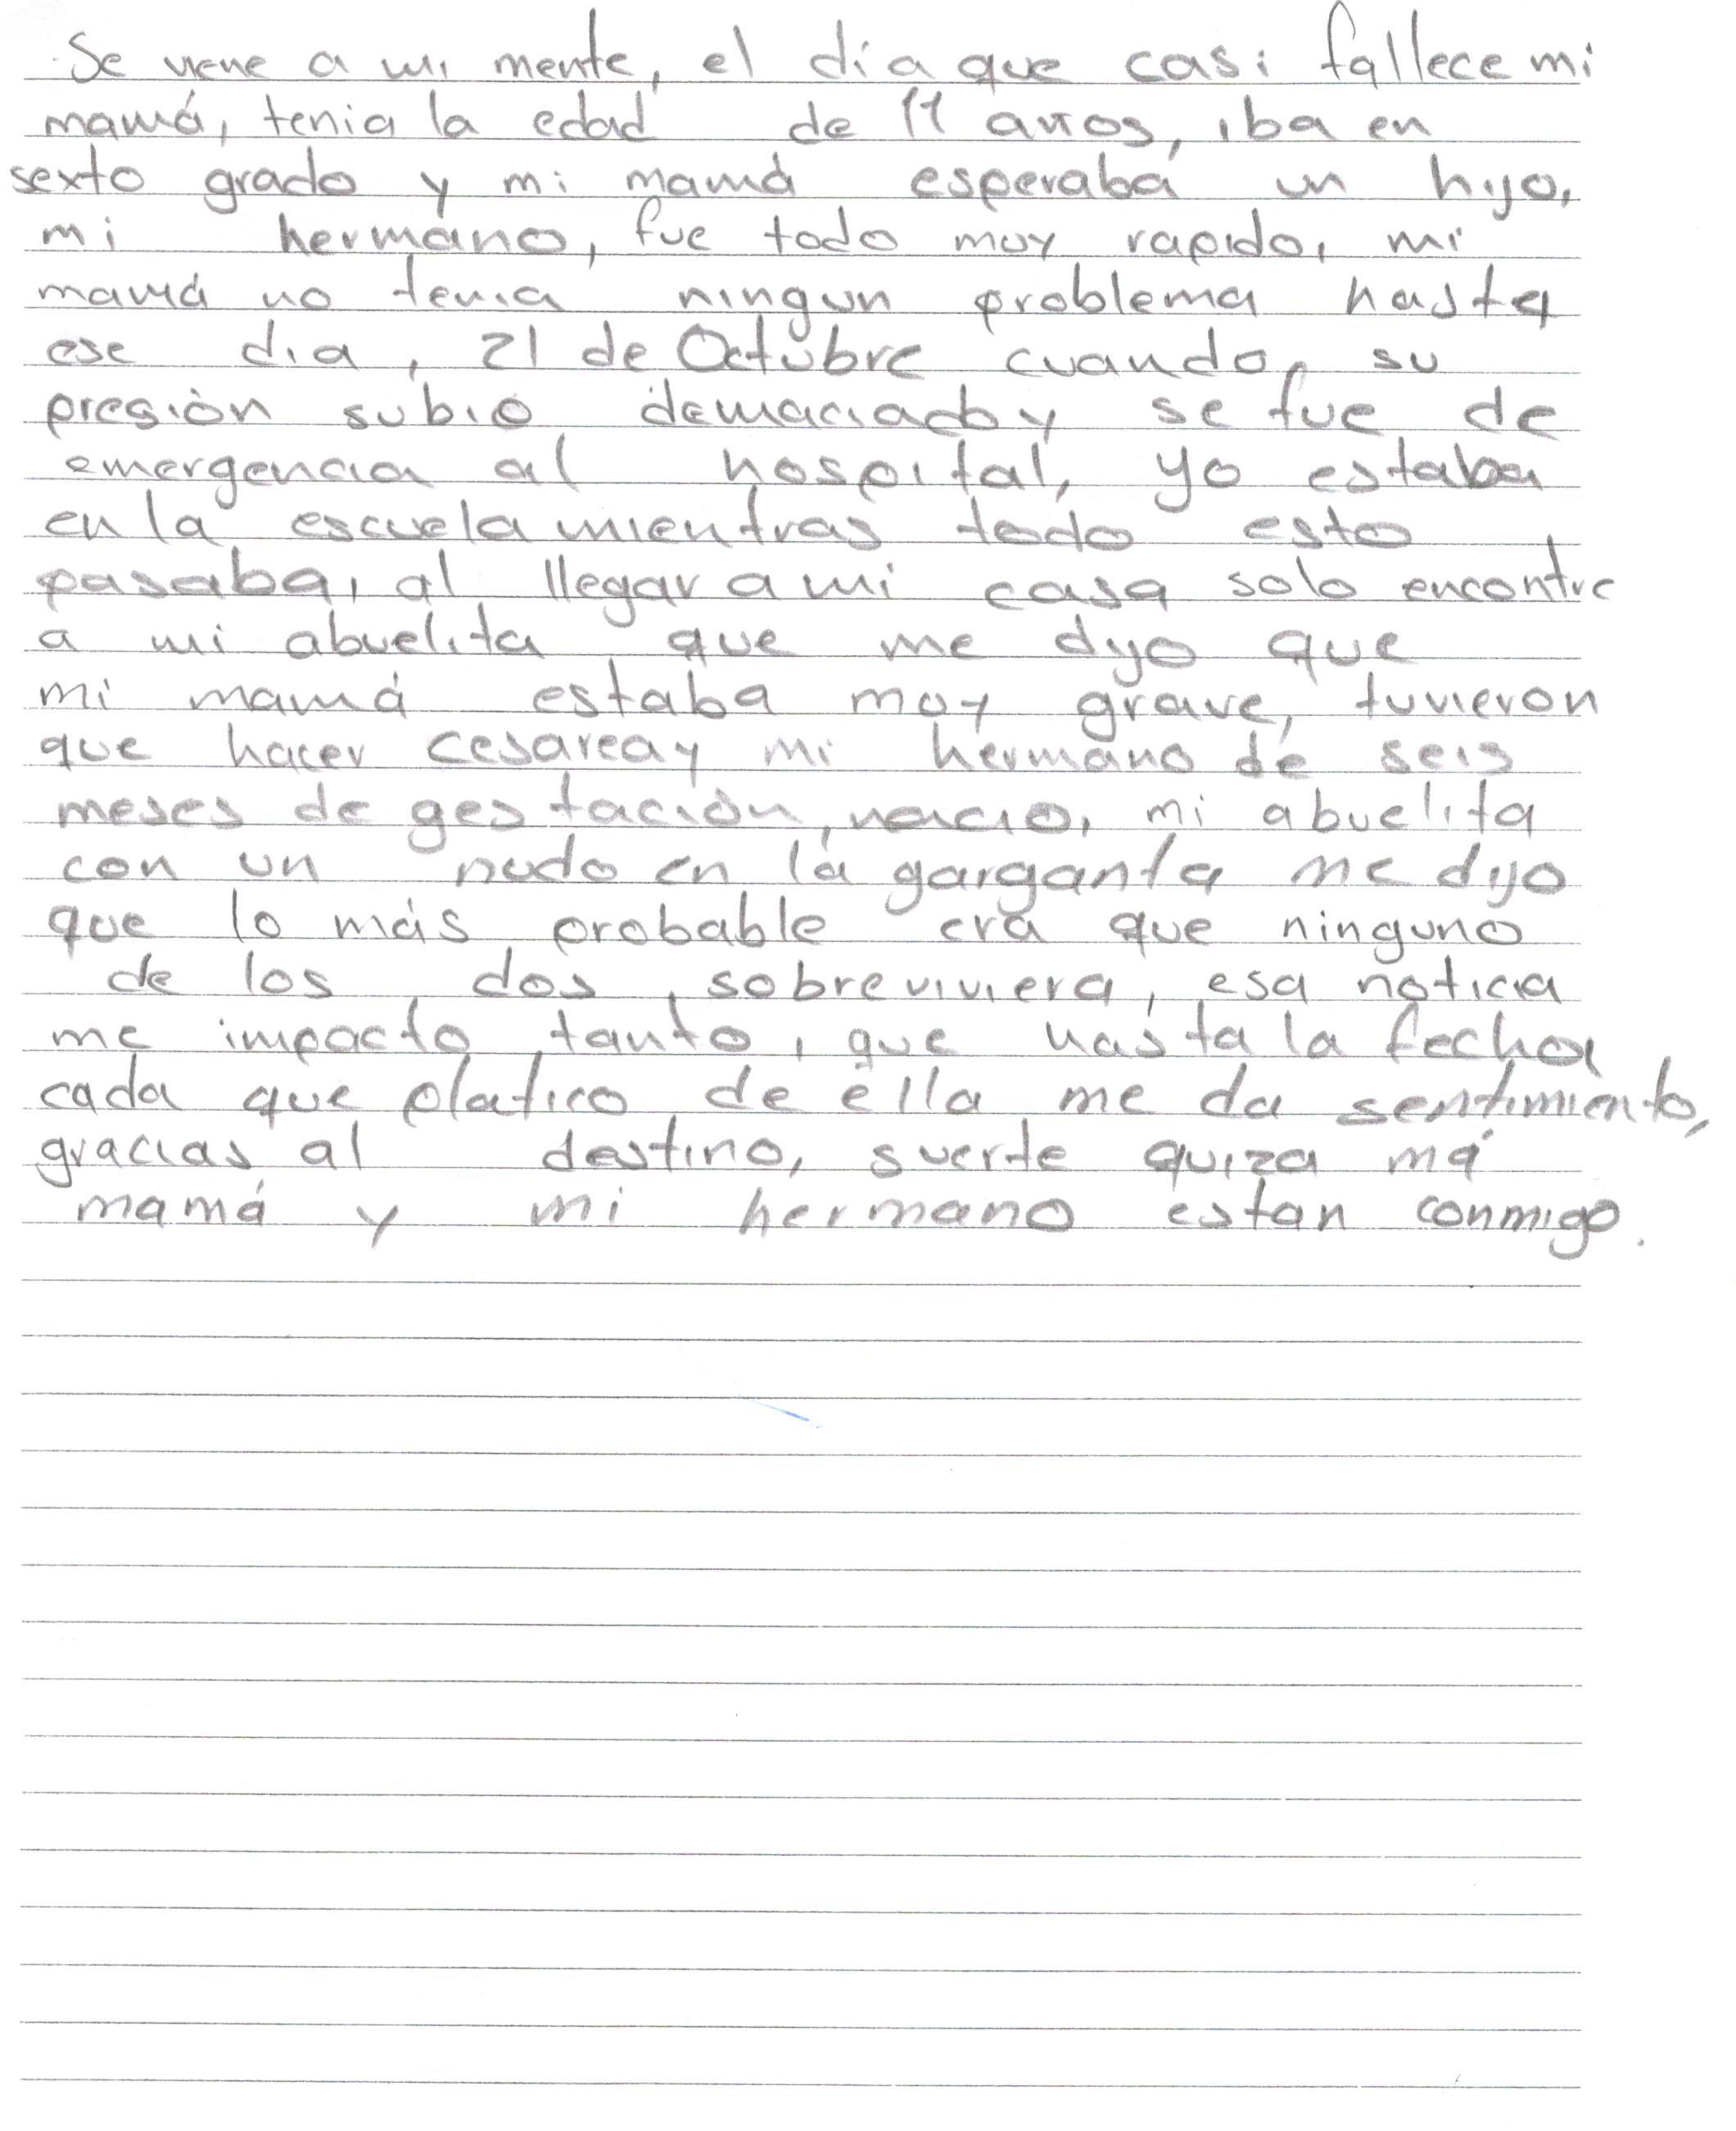 Se viene a mi mente, el dia que casi fallece mi
mamá, tenia la edad de 11 años, iba en
sexto grado y mi mamá esperaba un hijo,
mi hermano, fue todo muy rapido, mi
mamá no tenia ningun problema hasta
ese dia, 21 de Octubre cuando su
presión subio demaciado y se fue de
emergencia al hospital, yo estaba
en la escuela mientras todo esto
pasaba, al llegar a mi casa solo encontre
a mi abuelita que me dijo que
mi mamá estaba muy grave, tuvieron
que hacer cesarea y mi hermano de seis
meses de gestación, nacio, mi abuelita
con un nudo en la garganta me dijo
que lo más probable era que ninguno
de los dos sobreviviera, esa noticia
me impacto tanto, que hasta la fecha
cada que platico de ella me da sentimiento,
gracias al destino, suerte quiza ma
mamá y mi hermano estan conmigo.